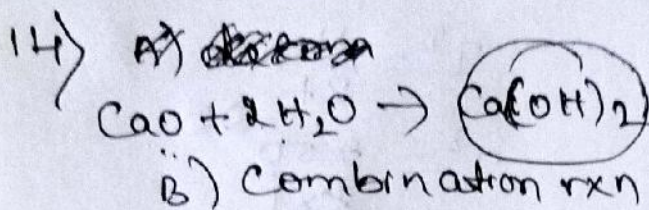 14) A)
CaO + 2H₂O → Ca(OH)₂
B) Combination rxn